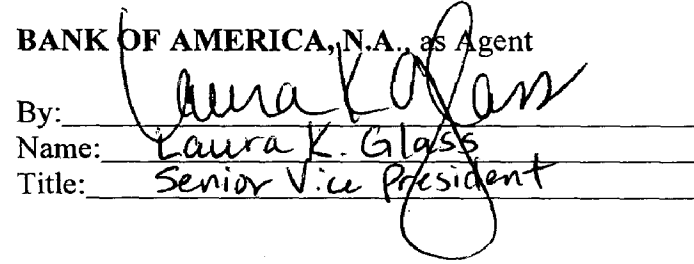 BANK OF AMERICA, N.A., as Agent
By: Laura K Glass
Name: Laura K. Glass
Title: Senior Vice President